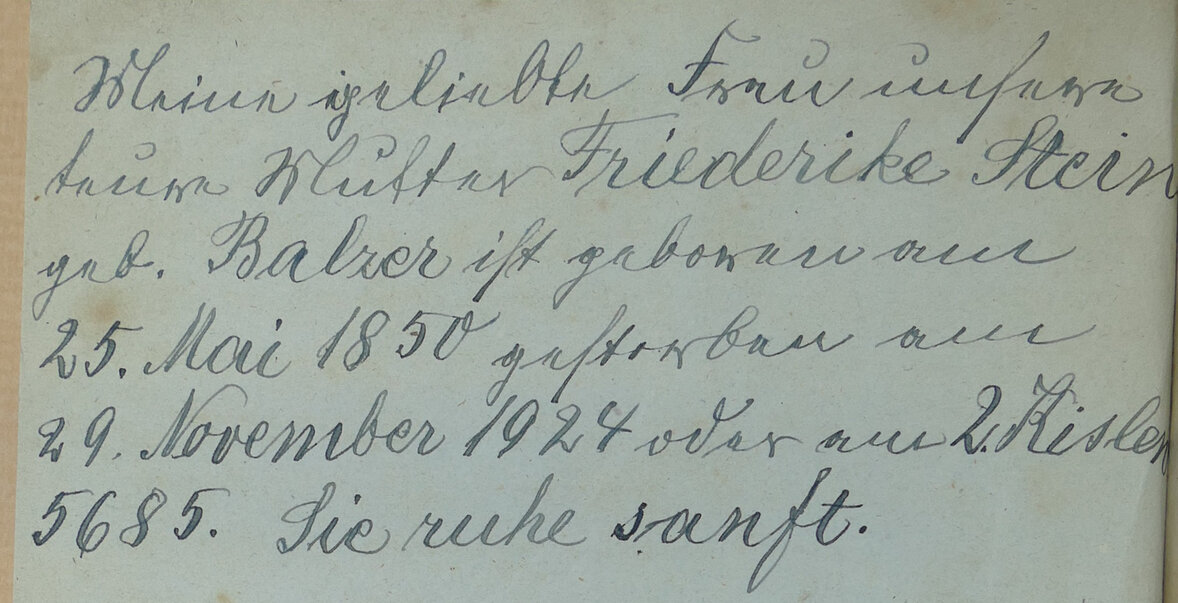 Meine geliebte Frau unsere
teure Mutter Friederike Stein
geb. Balzer ist geboren am
25. Mai 1850 gestorben am
29. November 1924 oder am 2. Kislew
5685. Sie ruhe sanft.